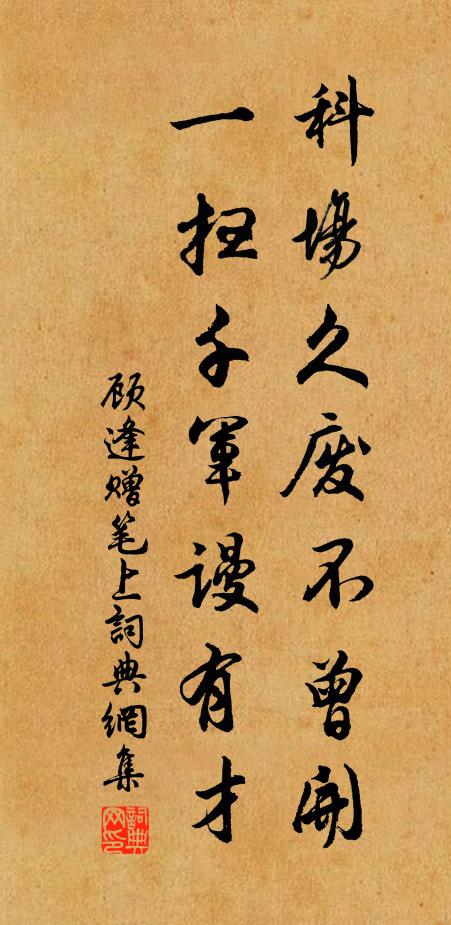 科場久廢不曾開
一掃千軍謾有才
顾逢赠笔上詞典網集
詞典網印